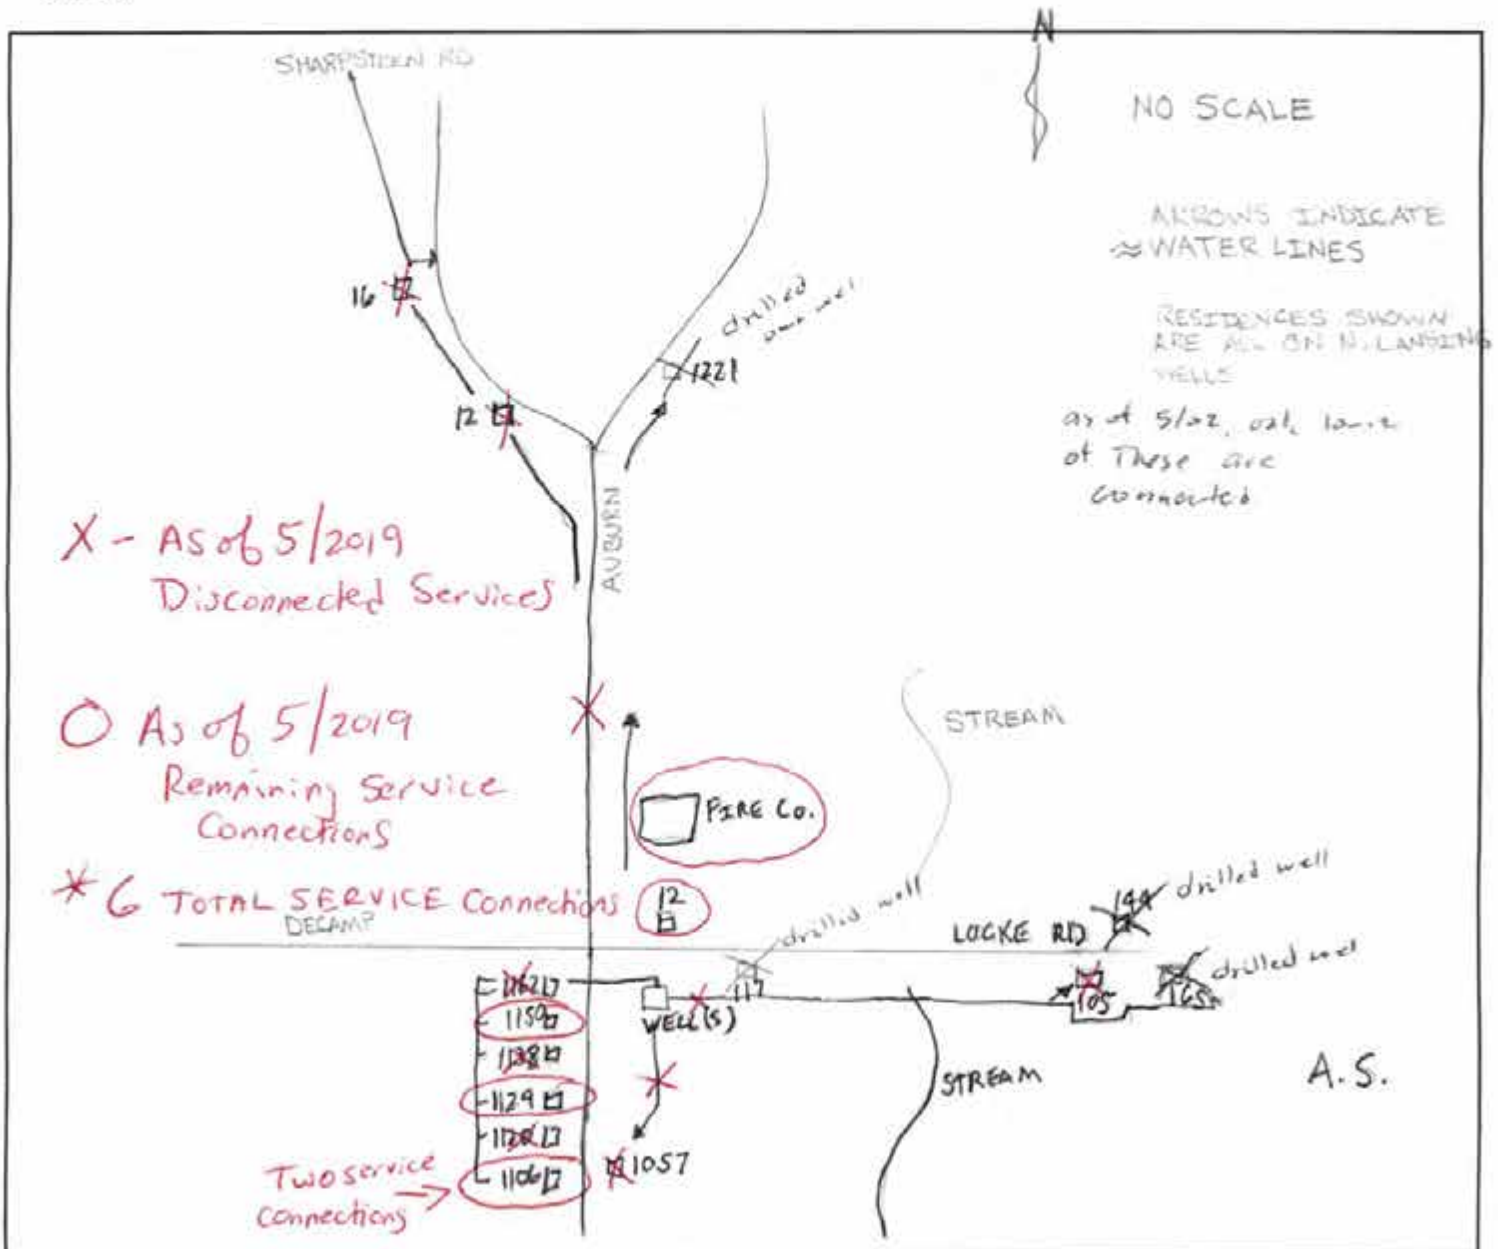 N
SHARPSTEEN RD
NO SCALE
ARROWS INDICATE
≈ WATER LINES
RESIDENCES SHOWN
ARE ALL ON N. LANSING
WELLS
as of 5/02, only
of These are
connected
16
drilled
1221
12
AUBURN
X - As of 5/2019
Disconnected Services
O As of 5/2019
Remaining Service
Connections
* 6 TOTAL SERVICE Connections
STREAM
FIRE Co.
12
DECAMP
drilled well
LOCKE RD
144
drilled well
drilled well
117
105
165
WELL(S)
1162
1150
1138
1129
1120
1106
Two service
connections
1057
STREAM
A.S.